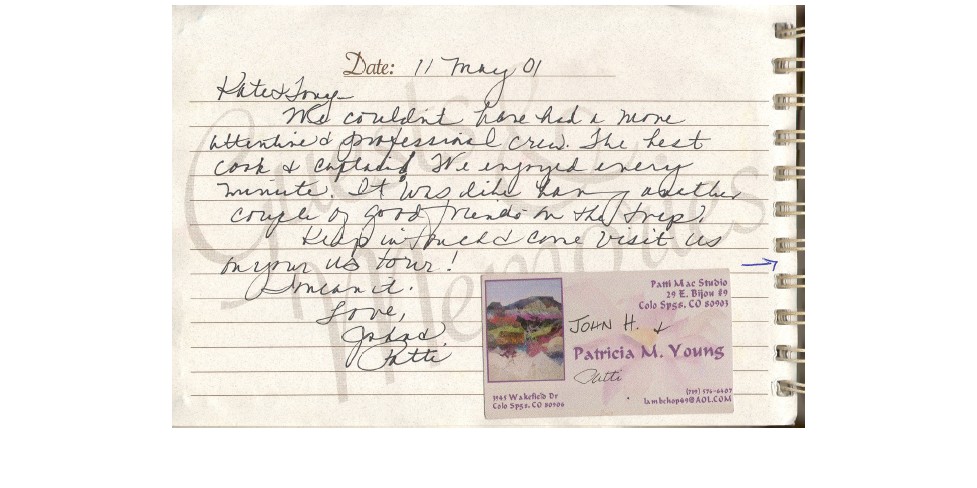 Guests
Memories
Date: 11 May 01
Kate & Tony
We couldn't have had a more
attentive & professional crew. The best
cook & captain! We enjoyed every
minute. It was like having another
couple of good friends on the trip.
Keep in touch & come visit us
on your US tour!
I mean it.
Love,
John &
Patti
Patti Mac Studio
29 E. Bijou #9
Colo Spgs. CO 80903
JOHN H. &
Patricia M. Young
Patti
Wakefield Dr
Colo Spgs. CO 80906
(719) 576-6407
lambchop49@AOL.COM